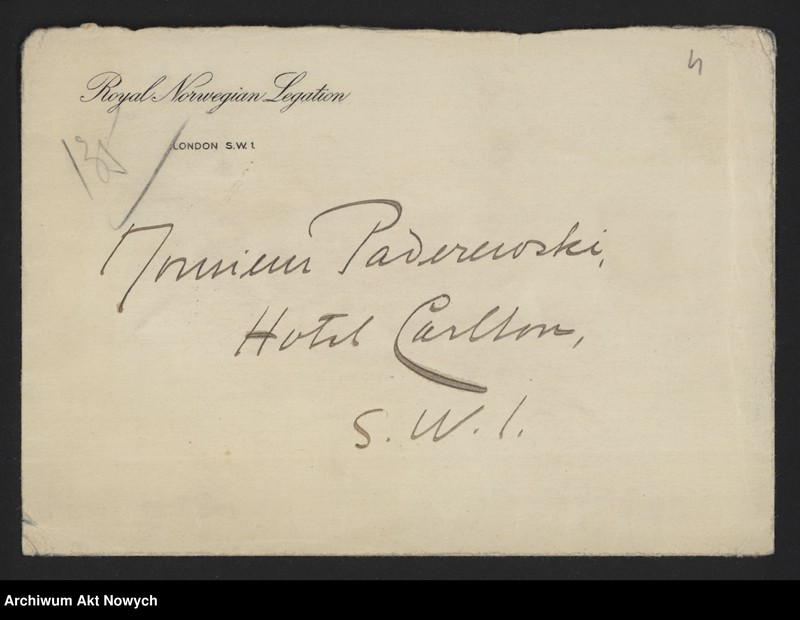 Royal Norwegian Legation
LONDON S.W.1.
Monsieur Paderewski,
Hotel Carlton,
S.W.1.
Archiwum Akt Nowych